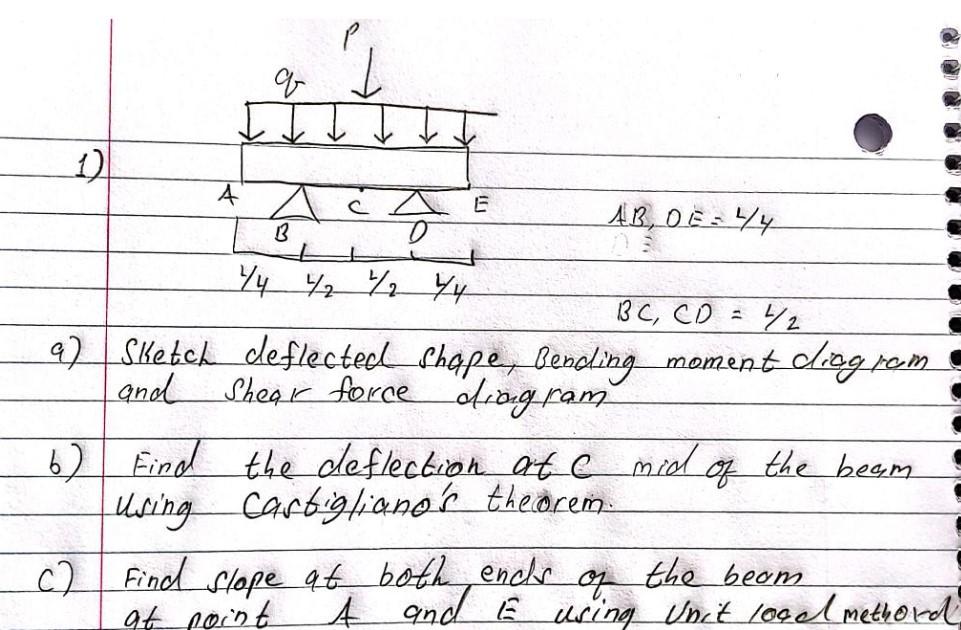 P
q
1)
A
C
E
B
D
AB, DE = L/4
L/4 L/2 L/2 L/4
BC, CD = L/2
a) Sketch deflected shape, Bending moment diagram
and Shear force diagram
b) Find the deflection at C mid of the beam
Using Castigliano's theorem.
c) Find slope at both ends of the beam
at point A and E using Unit load methord